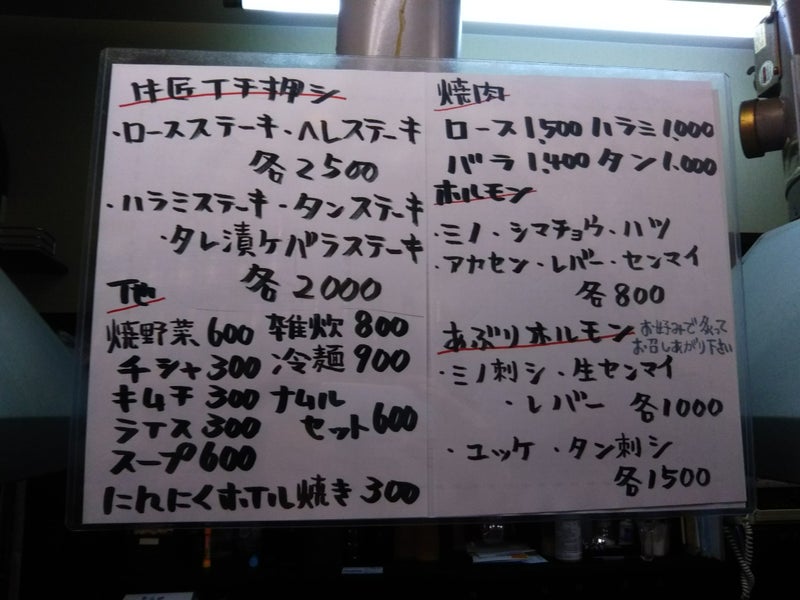 匠イチ押シ
・ロースステーキ・ヘレステーキ
各2500
・ハラミステーキ・タンステーキ
・タレ漬ケバラステーキ
各2000
他
焼野菜600 雑炊800
チシャ300 冷麺900
キムチ300 ナムル
ライス300 セット600
スープ600
にんにくホイル焼き300
焼肉
ロース1,500 ハラミ1,000
バラ1,400 タン1,000
ホルモン
・ミノ・シマチョウ・ハツ
・アカセン・レバー・センマイ
各800
あぶりホルモン お好みで炙って
お召しあがり下さい
・ミノ刺シ・生センマイ
・レバー 各1000
・ユッケ・タン刺シ
各1500